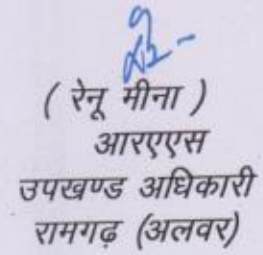 ( रेनू मीना )
आरएएस
उपखण्ड अधिकारी
रामगढ़ (अलवर)